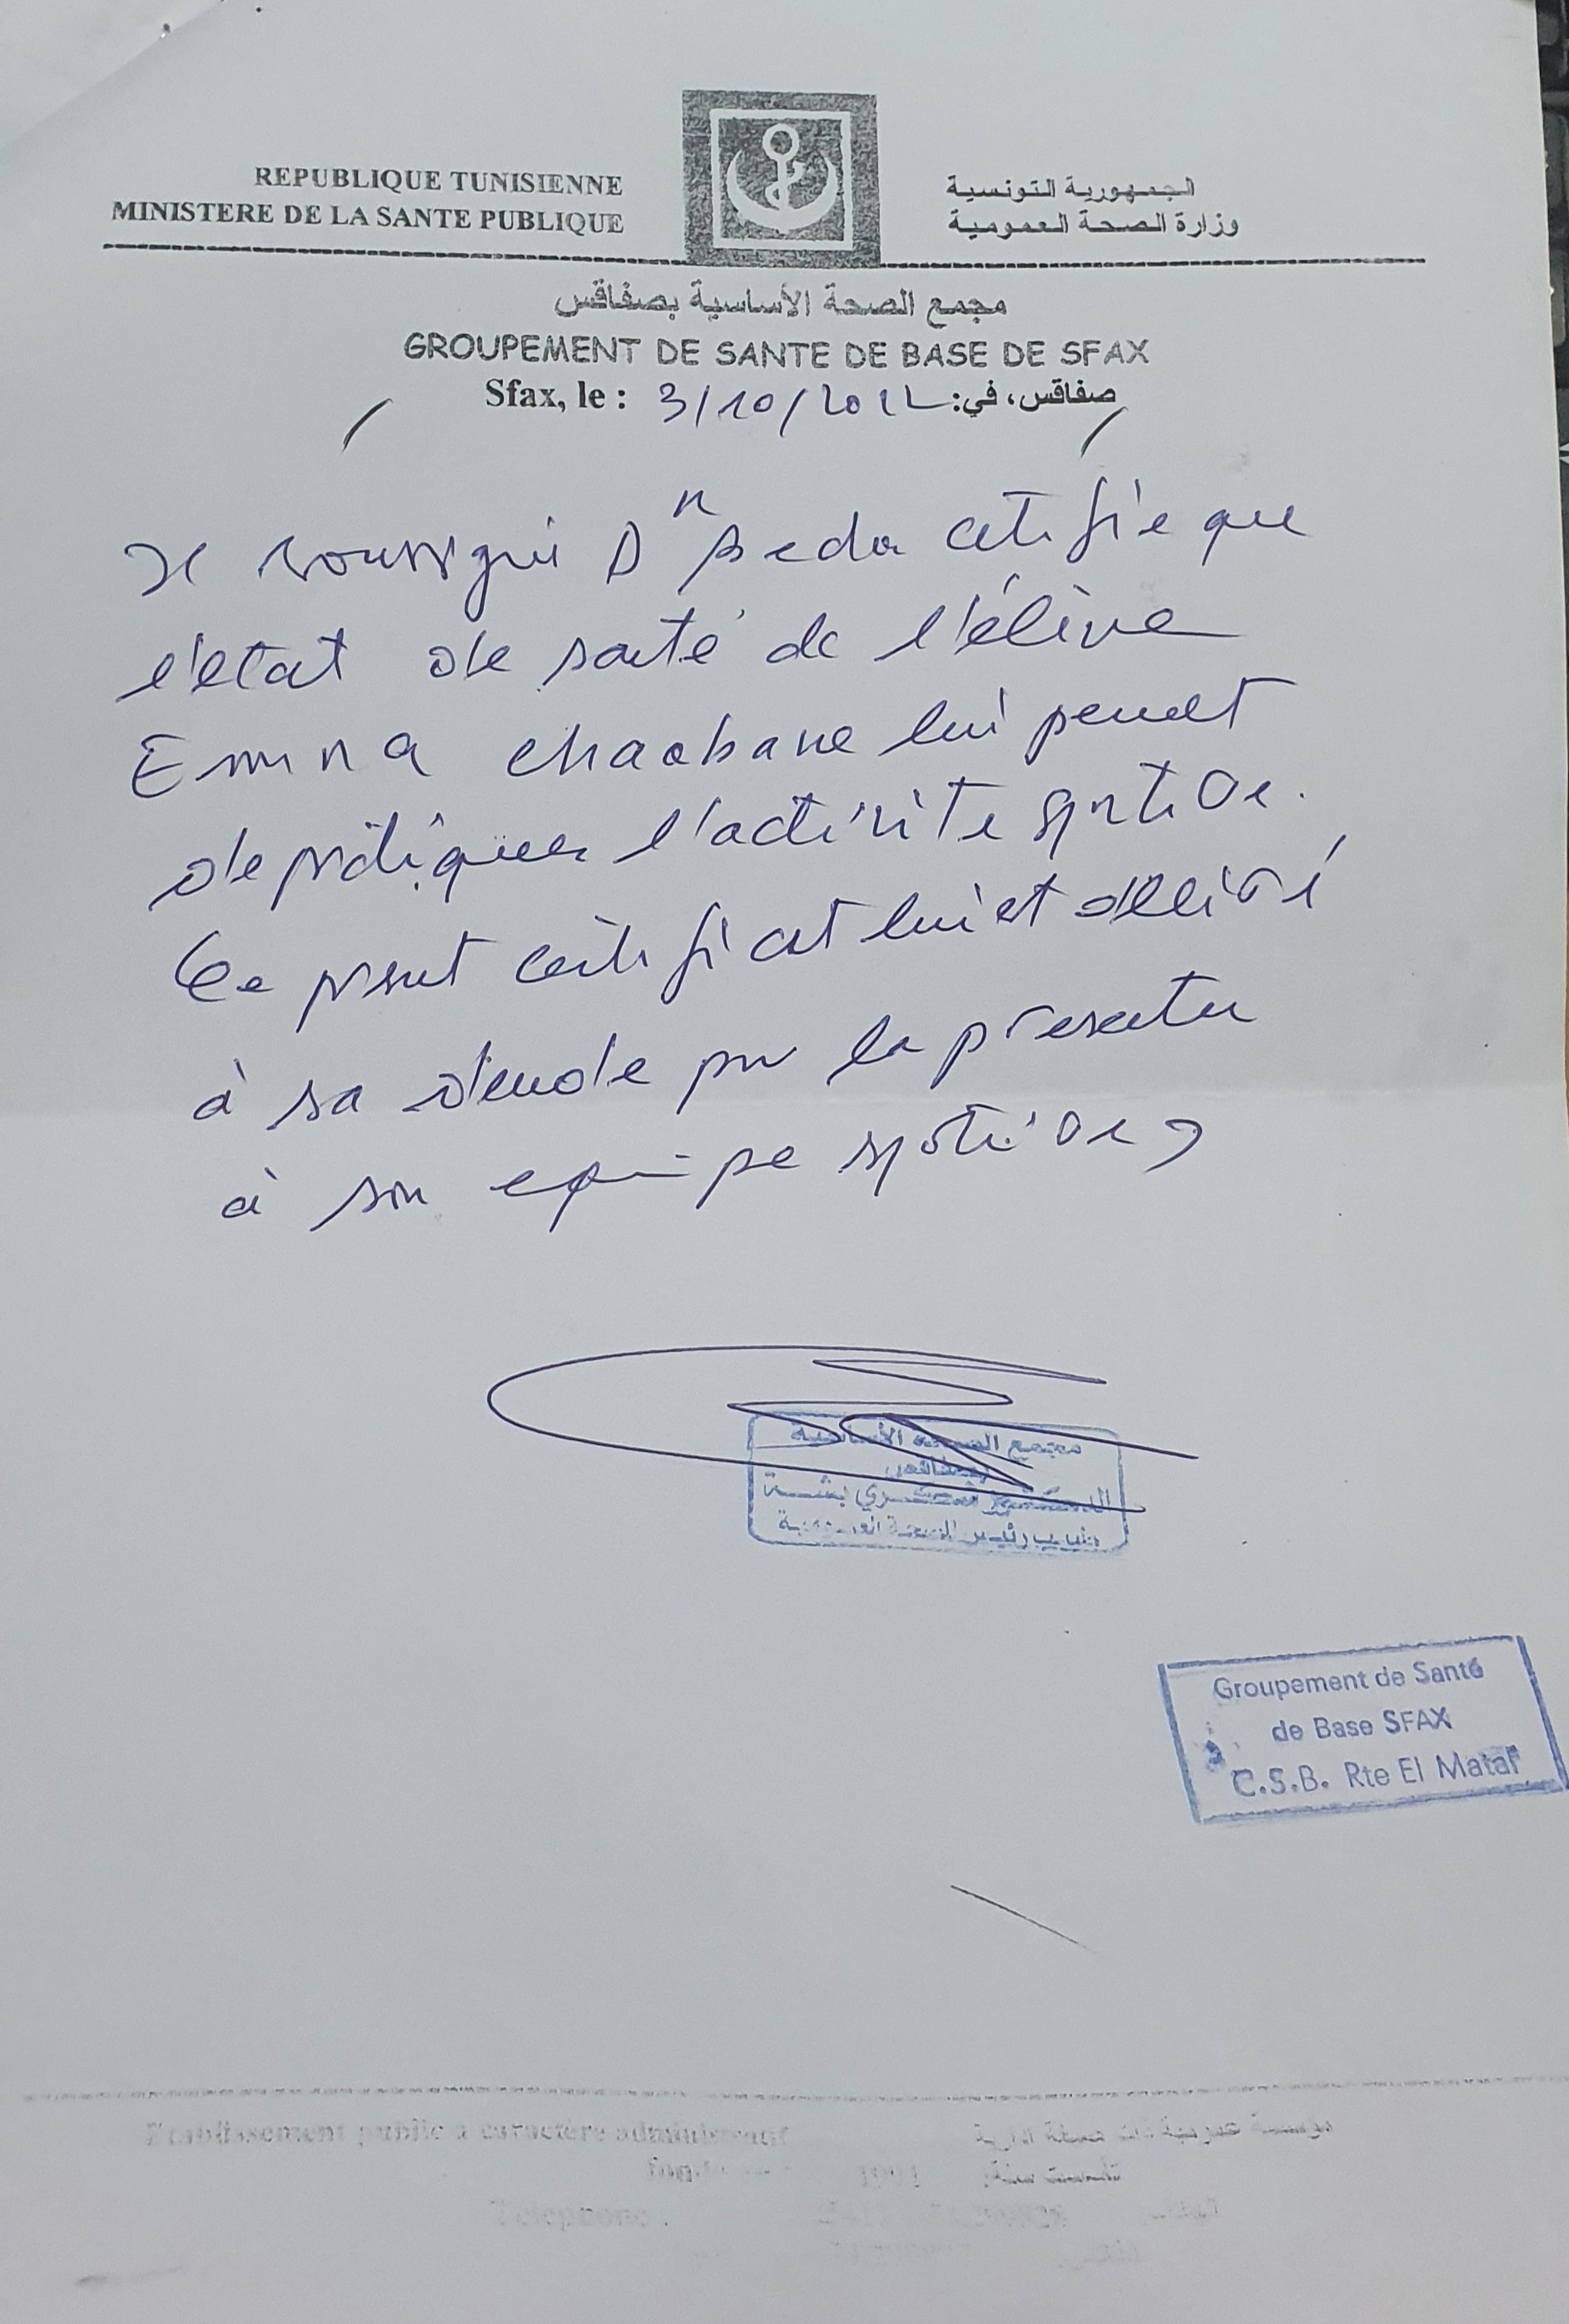 REPUBLIQUE TUNISIENNE
MINISTERE DE LA SANTE PUBLIQUE
الجمهورية التونسية
وزارة الصحة العمومية
مجمع الصحة الأساسية بصفاقس
GROUPEMENT DE SANTE DE BASE DE SFAX
Sfax, le : 3/10/2022 صفاقس، في:
Je soussigné Dr certifie que
l'état de santé de l'élève
Emna chaabane lui permet
de pratiquer l'activité sportive.
Ce présent certificat lui est délivré
à sa demande pour la présenter
à son equipe sportive
مجمع الصحة الأساسية
بصفاقس
Groupement de Santé
de Base SFAX
C.S.B. Rte El Matar
Etablissement public à caractère administratif
مؤسسة عمومية ذات صبغة ادارية
تأسست سنة: 1991
Téléphone :